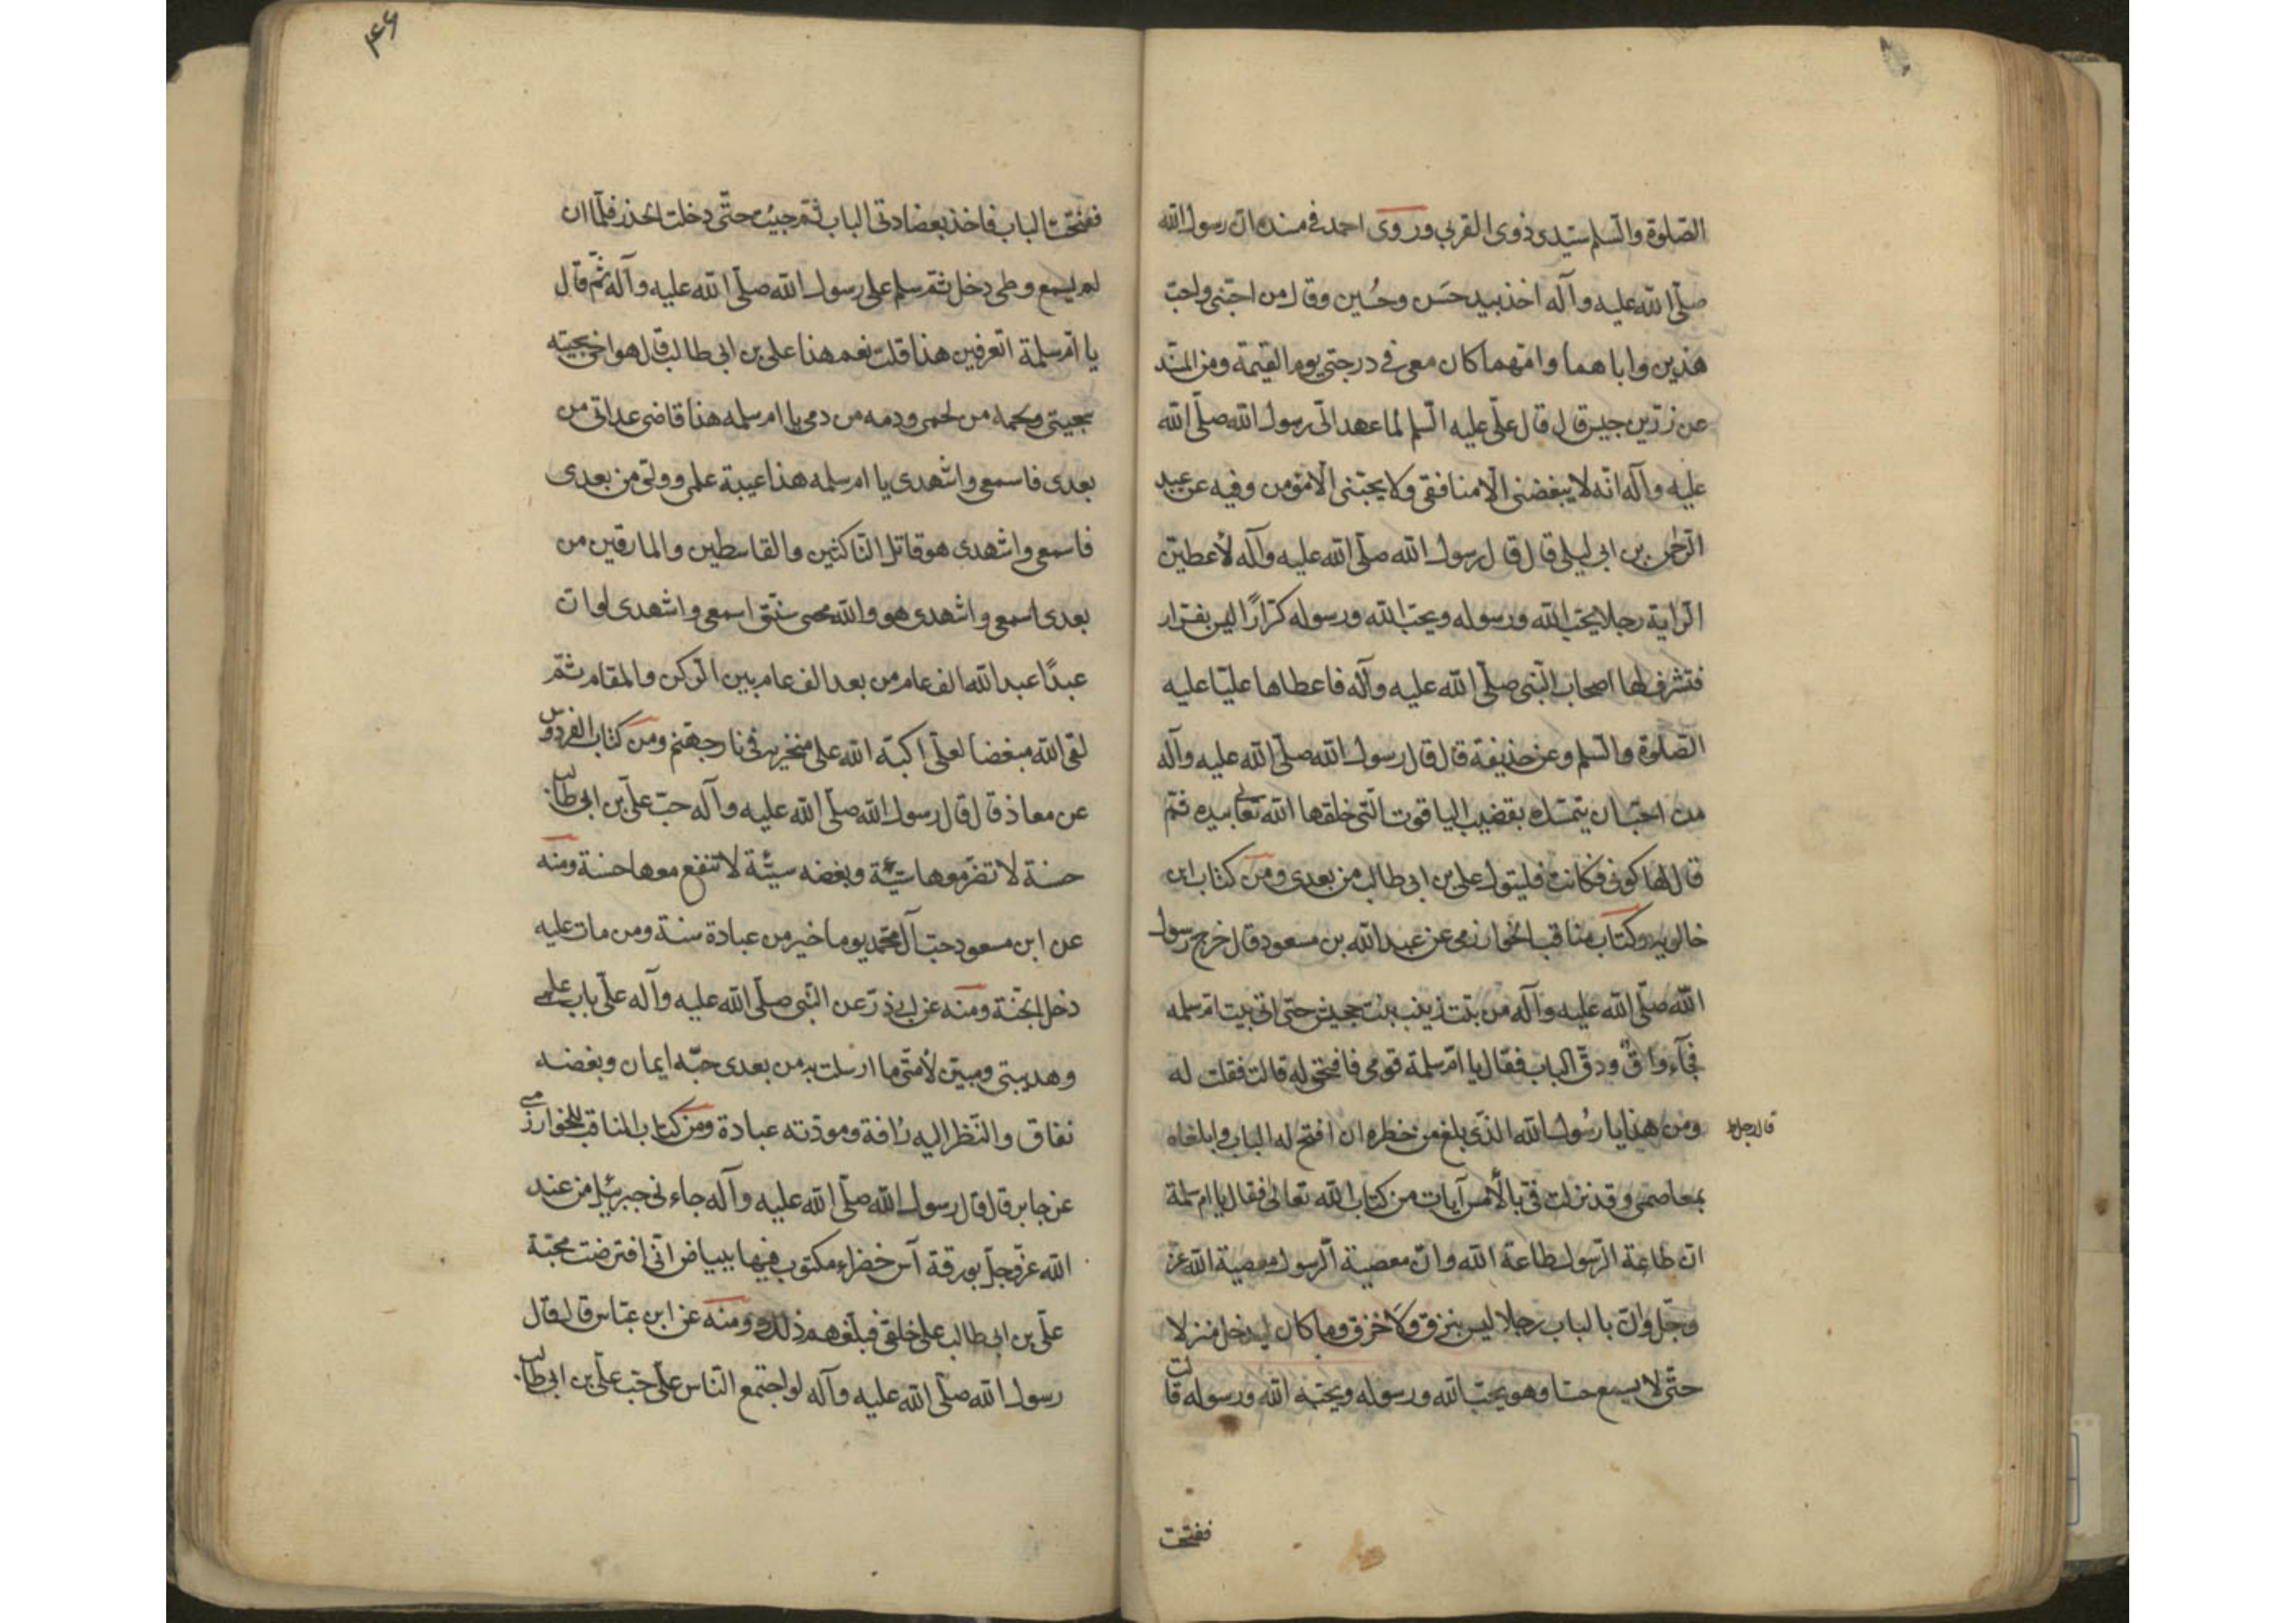 الصّلوة والسّلم سيّدى ذوى القربى وروى احمد فى مسنده انّ رسول الله
صلّى الله عليه وآله اخذ بيد حسَن وحُسين وقال من احبّنى واحبّ
هذين واباهما وامّهما كان معى فى درجتى يوم القيمة ومن المسند
عن زرّ بن حبيش قال قال علّى عليه السّلم لما عهد الىّ رسول الله صلّى الله
عليه وآله انّه لا يبغضنى الّا منافق ولا يحبّنى الّا مؤمن وفيه عن عبد
الرّحمن بن ابى ليلى قال قال رسول الله صلّى الله عليه وآله لأعطينّ
الرّاية رجلا يحبّ الله ورسوله ويحبّه الله ورسوله كرّارًا ليس بفرّار
فتشرف لها اصحاب النّبى صلّى الله عليه وآله فاعطاها عليّا عليه
الصّلوة والسّلم وعن حذيفة قال قال رسول الله صلّى الله عليه وآله
من احبّ ان يتمسّك بقضيب الياقوت الّتى خلقها الله تعالى بيده فتم
قال لها كونى فكانت فليتول على بن ابى طالب من بعدى ومن كتاب ابن
خالويه وكتاب مناقب الخوارزمى عن عبد الله بن مسعود قال خرج رسول
الله صلّى الله عليه وآله من بيت زينب بنت جحيش حتى اتى بيت امّ سلمه
فجآء داقّ ودقّ الباب فقال يا امّ سلمة قومى فافتحى له قالت فقلت له
ومن هذا يا رسُول الله الذّى بلغ من خطره ان افتح له الباب وابلغاه
قال رجل
بمعاصمى وقد نزلت فىّ بالأمس آيات من كتاب الله تعالى فقال يا ام سلمة
ان طاعة الرّسول طاعة الله وانّ معصية الرّسول معصية الله عزّ
وجّل وانّ بالباب رجلا ليس بنزق ولا خزق وما كان ليدخل منزلا
حتّى لا يسمع حسّا وهو يحبّ الله ورسوله ويحبّه الله ورسوله قالت
ففتحت
۴۶
ففتحت الباب فاخذ بعضادتى الباب ثمّ جئت حتّى دخلت الخدر فلمّا ان
لم يسمع وطى دخل ثمّ سلم على رسول الله صلّى الله عليه وآله ثمّ قال
يا امّ سلمة اتعرفين هذا قلت نعم هذا على بن ابى طالب قال هو اخى سجيته
سجيتى ولحمه من لحمى ودمه من دمى يا ام سلمه هذا قاضى عداتى من
بعدى فاسمعى واشهدى يا ام سلمه هذا عيبة علمى وولّى من بعدى
فاسمعى واشهدى هو قاتل النّاكثين والقاسطين والمارقين من
بعدى اسمعى واشهدى هو والله محيى سنّتى اسمعى واشهدى لو انّ
عبدًا عبد الله الف عام من بعد الف عام بين الرّكن والمقام ثمّ
لقى الله مبغضا لعلى اكبّه الله على منخريه فى نار جهنّم ومن كتاب الفردوس
عن معاذ قال قال رسول الله صلّى الله عليه وآله حبّ علّى بن ابى طالب
حسنة لا تضر معها سيّئة وبغضه سيّئة لا تنفع معها حسنة ومنه
عن ابن مسعود حبّ آل محمّد يوما خير من عبادة سنة ومن مات عليه
دخل الجنّة ومنه عن ابى ذرّ عن النّبى صلّى الله عليه وآله علّى باب علمى
وهديتى ومبيّن لأمّتى ما ارسلت به من بعدى حبّه ايمان وبغضه
نفاق والنّظر اليه رأفة ومودّته عبادة ومن كتاب المناقب للخوارزمى
عن جابر قال قال رسول الله صلّى الله عليه وآله جاءنى جبرئيل من عند
الله عزّوجلّ بورقة آس خضراء مكتوب فيها ببياض انّى افترضت محبّة
علّى بن ابى طالب على خلقى فبلّغهم ذلك ومنه عن ابن عبّاس قال قال
رسول الله صلّى الله عليه وآله لو اجتمع النّاس على حبّ علّى بن ابى طالب